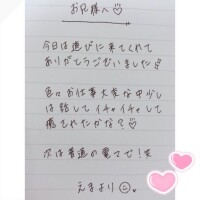 お兄様へ♡
今日は遊びに来てくれて
ありがとうございました♡
色々お仕事大変な中少し
は話してイチャイチャして
癒されたかな?♡
次は普通の電マで!笑
えまより☺。